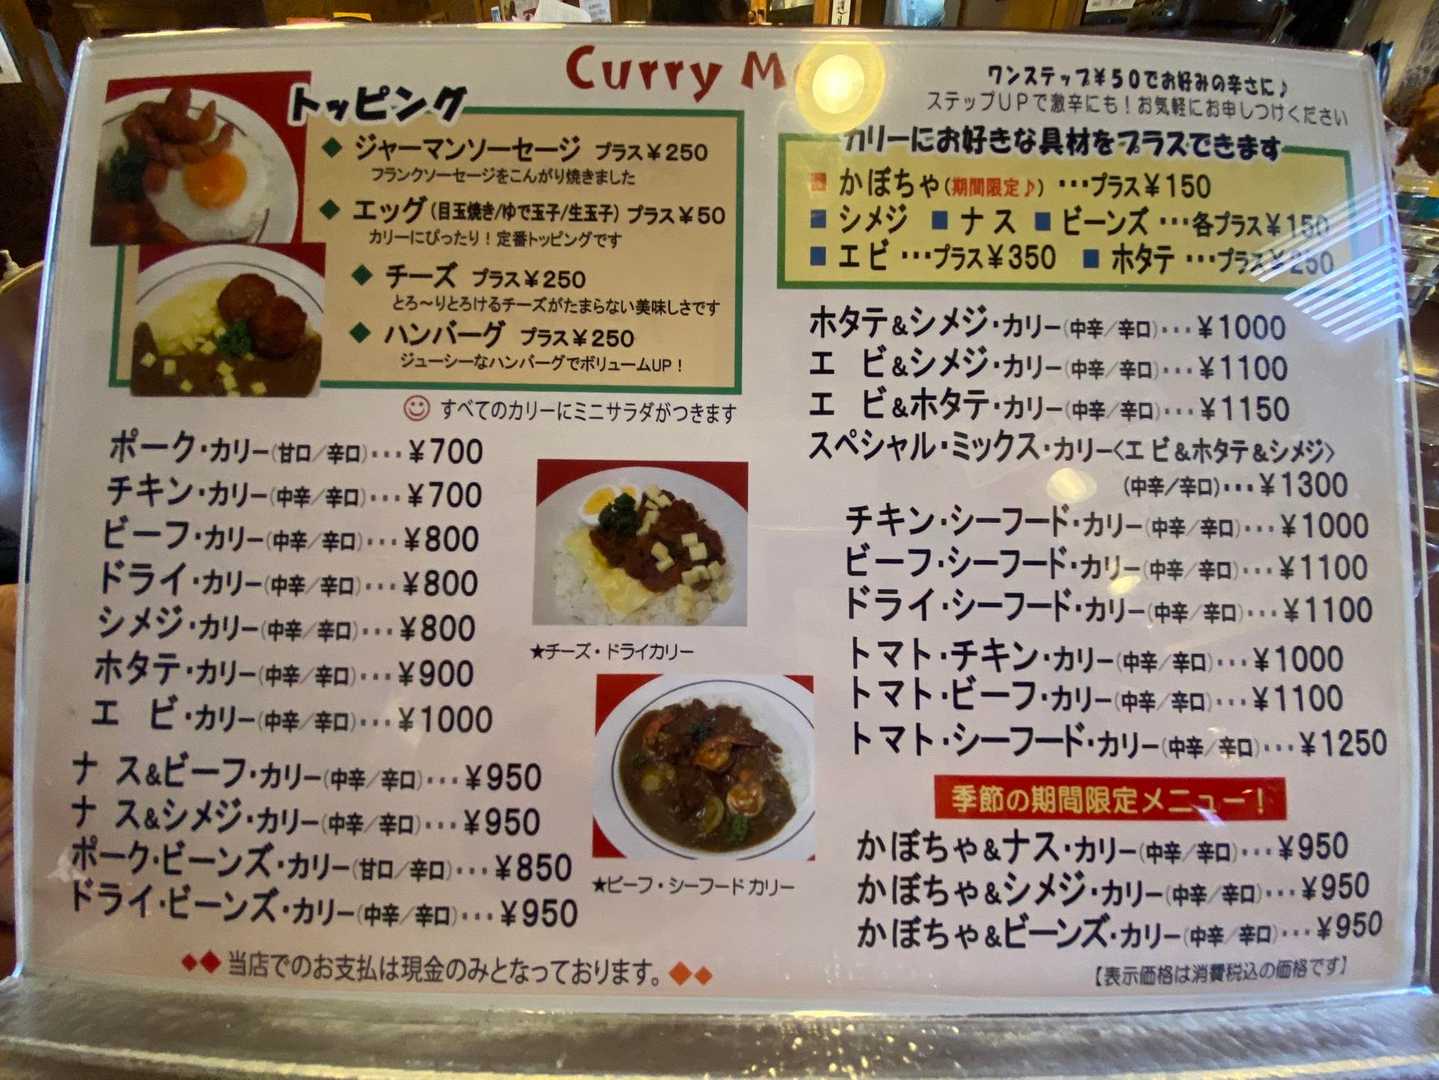 Curry M
ワンステップ¥50でお好みの辛さに♪
ステップUPで激辛にも！お気軽にお申しつけください
トッピング
◆ ジャーマンソーセージ プラス¥250
フランクソーセージをこんがり焼きました
◆ エッグ(目玉焼き/ゆで玉子/生玉子) プラス¥50
カリーにぴったり！定番トッピングです
◆ チーズ プラス¥250
とろ～りとろけるチーズがたまらない美味しさです
◆ ハンバーグ プラス¥250
ジューシーなハンバーグでボリュームUP！
すべてのカリーにミニサラダがつきます
ポーク・カリー(甘口/辛口)・・・¥700
チキン・カリー(中辛/辛口)・・・¥700
ビーフ・カリー(中辛/辛口)・・・¥800
ドライ・カリー(中辛/辛口)・・・¥800
シメジ・カリー(中辛/辛口)・・・¥800
ホタテ・カリー(中辛/辛口)・・・¥900
エ ビ・カリー(中辛/辛口)・・・¥1000
ナ ス&ビーフ・カリー(中辛/辛口)・・・¥950
ナ ス&シメジ・カリー(中辛/辛口)・・・¥950
ポーク・ビーンズ・カリー(甘口/辛口)・・・¥850
ドライ・ビーンズ・カリー(中辛/辛口)・・・¥950
★チーズ・ドライカリー
★ビーフ・シーフードカリー
◆◆当店でのお支払は現金のみとなっております。◆◆
カリーにお好きな具材をプラスできます
かぼちゃ(期間限定♪)・・・プラス¥150
■シメジ ■ナス ■ビーンズ・・・各プラス¥150
■エビ・・・プラス¥350 ■ホタテ・・・プラス¥250
ホタテ&シメジ・カリー(中辛/辛口)・・・¥1000
エ ビ&シメジ・カリー(中辛/辛口)・・・¥1100
エ ビ&ホタテ・カリー(中辛/辛口)・・・¥1150
スペシャル・ミックス・カリー<エビ&ホタテ&シメジ>
(中辛/辛口)・・・¥1300
チキン・シーフード・カリー(中辛/辛口)・・・¥1000
ビーフ・シーフード・カリー(中辛/辛口)・・・¥1100
ドライ・シーフード・カリー(中辛/辛口)・・・¥1100
トマト・チキン・カリー(中辛/辛口)・・・¥1000
トマト・ビーフ・カリー(中辛/辛口)・・・¥1100
トマト・シーフード・カリー(中辛/辛口)・・・¥1250
季節の期間限定メニュー！
かぼちゃ&ナス・カリー(中辛/辛口)・・・¥950
かぼちゃ&シメジ・カリー(中辛/辛口)・・・¥950
かぼちゃ&ビーンズ・カリー(中辛/辛口)・・・¥950
【表示価格は消費税込の価格です】